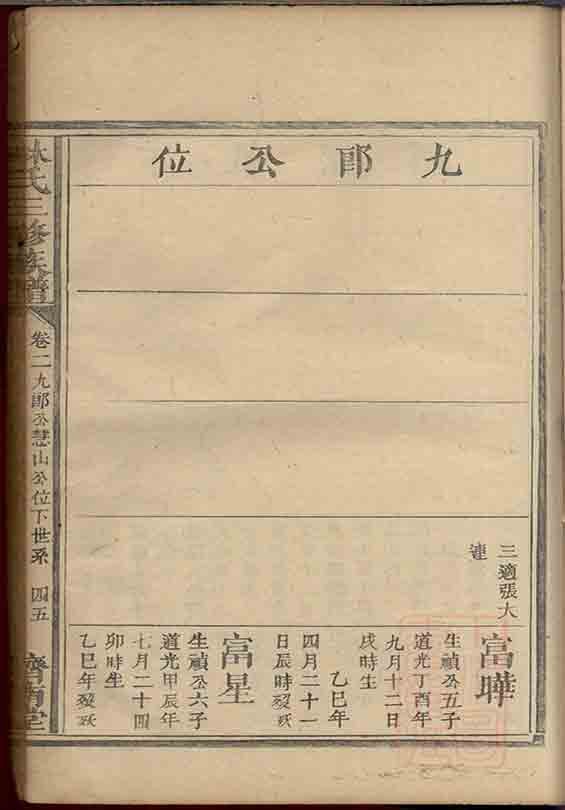 九郎公位
三適張大
連
富曄
生禎公五子
道光丁酉年
九月十二日
戌時生
乙巳年
四月二十一
日辰時殁殀
富星
生禎公六子
道光甲辰年
七月二十四
卯時生
乙巳年殁殀
林氏三修族譜
卷二九郎公慧山公位下世系
四五
濟南堂